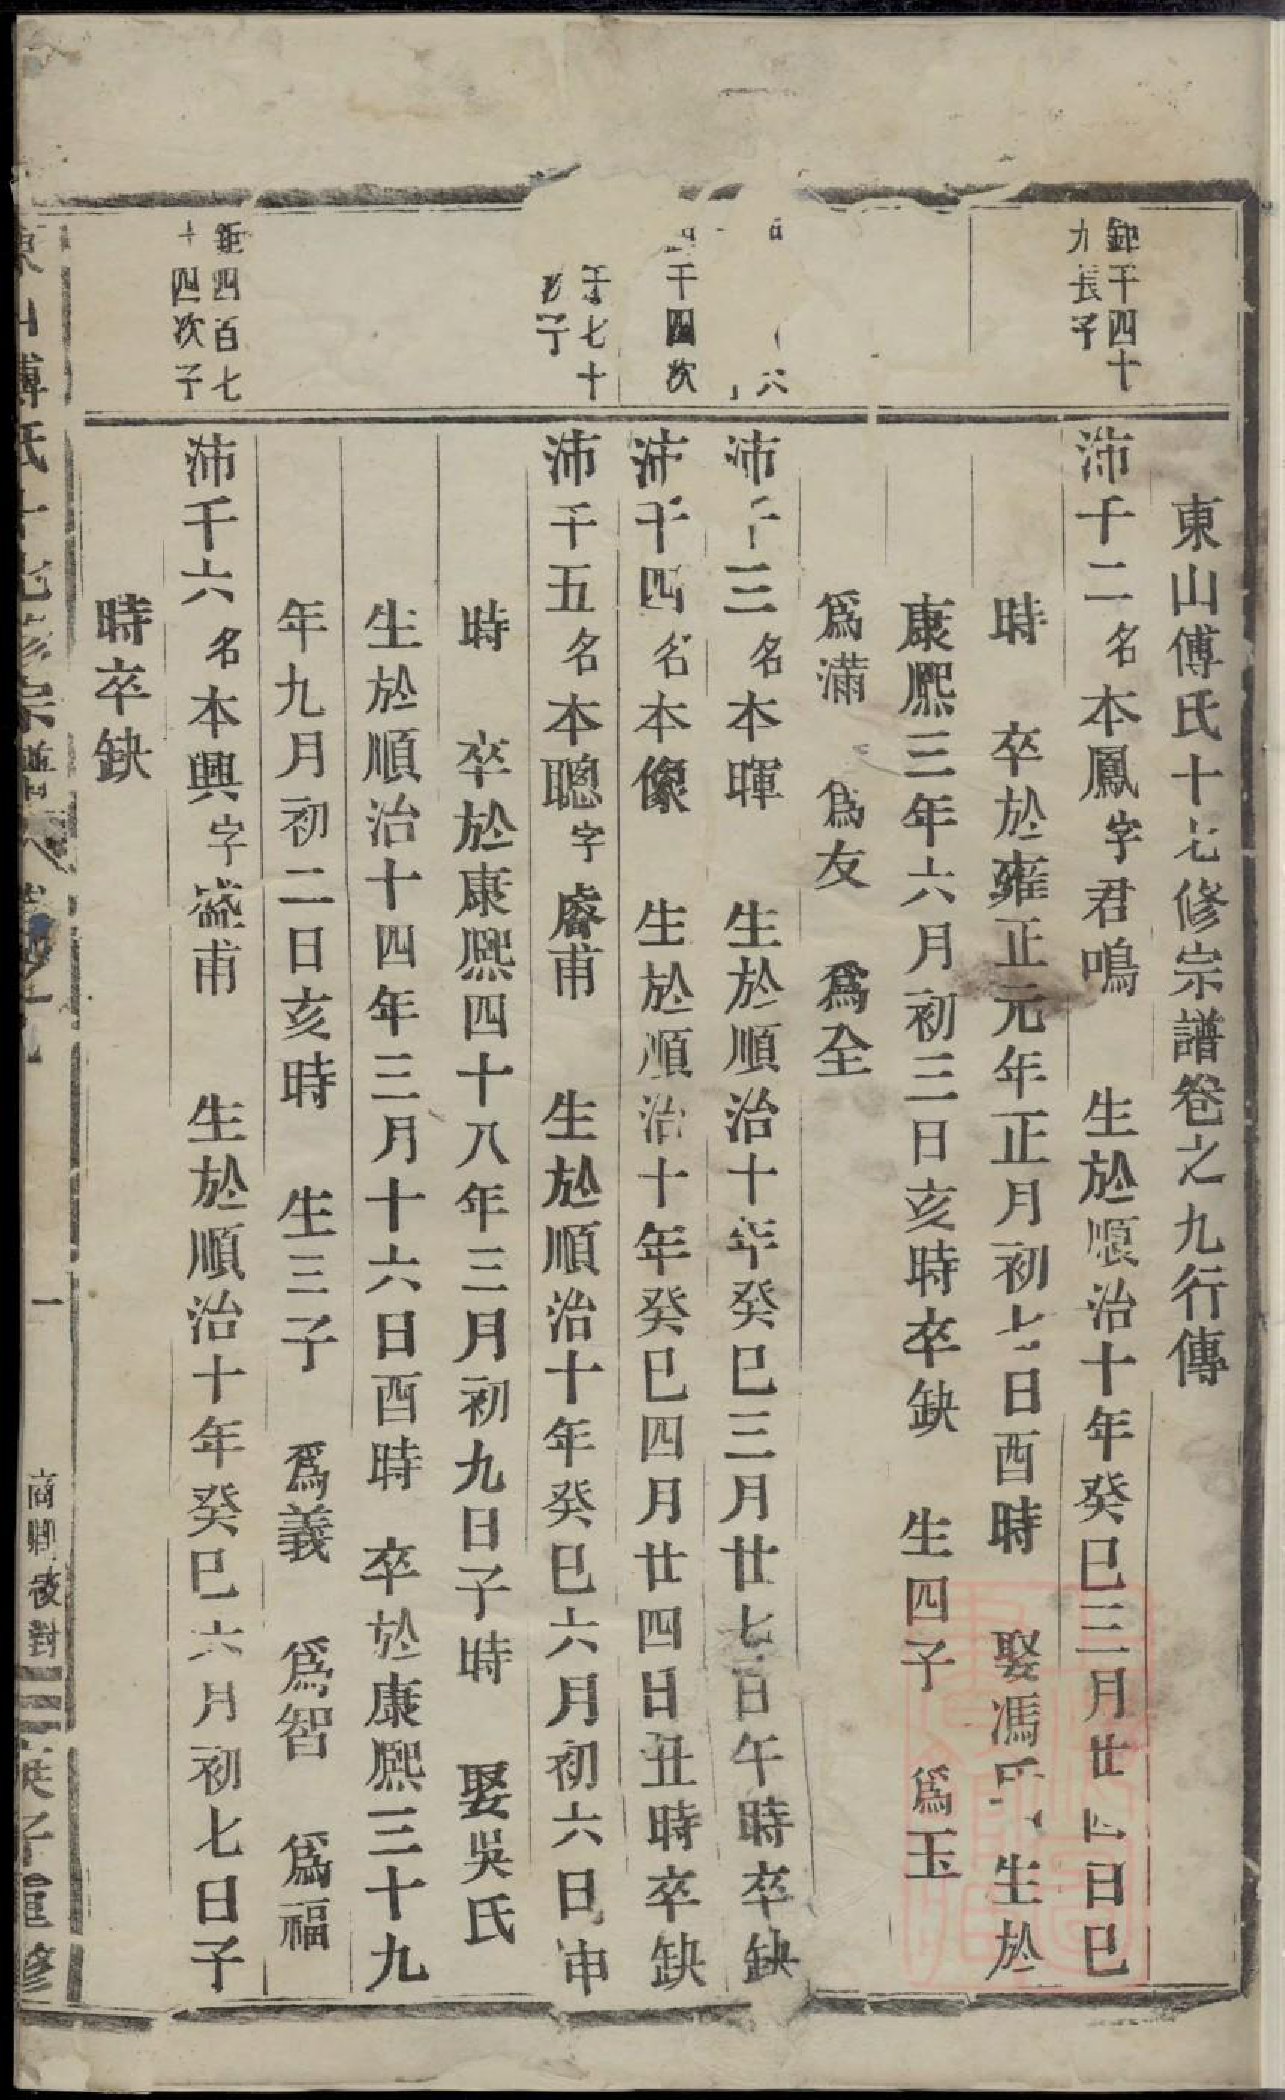 東山傅氏十七修宗譜卷之九行傳
鉀千四十
九長子
沛千二名本鳳字君鳴 生於順治十年癸巳三月廿四日巳
時 卒於雍正元年正月初七日酉時 娶馮氏 生於
康熙三年六月初三日亥時卒缺 生四子 爲玉
爲滿 爲友 爲全
六
沛千三名本暉 生於順治十年癸巳三月廿七日午時卒缺
千四次
沛千四名本像 生於順治十年癸巳四月廿四日丑時卒缺
千七十
子
沛千五名本聰字睿甫 生於順治十年癸巳六月初六日申
時 卒於康熙四十八年三月初九日子時 娶吳氏
生於順治十四年三月十六日酉時 卒於康熙三十九
年九月初二日亥時 生三子 爲義 爲智 爲福
鉅四百七
十四次子
沛千六名本興字盛甫 生於順治十年癸巳六月初七日子
時卒缺
東山傅氏十七修宗譜 一 校對 英子重修